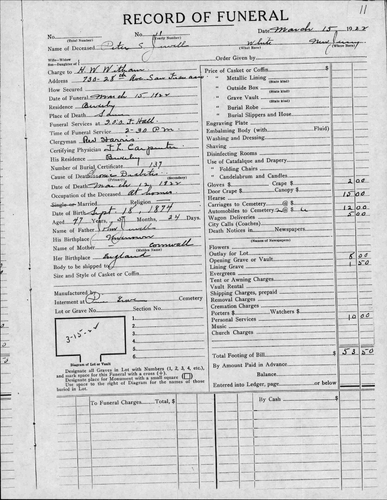 11
RECORD OF FUNERAL
No. 11 Date March 15 1922
(Yearly Number)
Name of Deceased Peter S. White New Jersey
(What Race) (Where Born)
Order Given by
Charge to H. W. Witham
Address 730-28th Ave. San Francisco
How Secured
Date of Funeral March 15 1922
Residence Beverly
Place of Death
Funeral Services at I.O.O.F. Hall
Time of Funeral Service 2-30 P.M.
Clergyman Rev Harris
Certifying Physician J. L. Carpenter
His Residence Beverly
Number of Burial Certificate 137
Cause of Death Diabetes
(Primary) (Secondary)
Date of Death March 12, 1922
Occupation of the Deceased at home
Single or Married Religion
Date of Birth Sept 18, 1874
Aged 47 Years 5 Months 24 Days
Name of Father
His Birthplace
Name of Mother Cornwall
(Maiden Name)
Her Birthplace England
Body to be shipped to
Size and Style of Casket or Coffin
Manufactured by
Interment at Cemetery
Lot or Grave No. Section No.
3-15-22
1.
2.
3.
4.
5.
6.
Diagram of Lot or Vault
Designate all Graves in Lot with Numbers (1, 2, 3, 4, etc.),
and mark space for this Funeral with a cross (+).
Designate place for Monument with a small square
Use space to the right of Diagram for the names of those
buried in Lot.
Price of Casket or Coffin $
" Metallic Lining
(State Kind)
" Outside Box
(State Kind)
" Grave Vault
(State Kind)
" Burial Robe
(State Kind)
" Burial Slippers and Hose
Engraving Plate
Embalming Body (with Fluid)
Washing and Dressing
Shaving
Disinfecting Rooms
Use of Catafalque and Drapery
" Folding Chairs
" Candelabrum and Candles
Gloves $ Crape $ 2 00
Door Crape $
Hearse 15 00
Carriages to Cemetery @ $
Automobiles to Cemetery 2 @ $ 6 12 00
Wagon Deliveries 5 00
City Calls (Autos)
Death Notices in Newspapers
(Names of Newspapers)
Flowers
Outlay for Lot
Opening Grave or Vault 8 00
Lining Grave 1 50
Evergreen
Tent or Awning Charges
Vault Rental
Shipping Charges, prepaid
Removal Charges
Cremation Charges
Porters $ Watchers $
Personal Services 10 00
Music
Church Charges
Total Footing of Bill $ 53 50
By Amount Paid in Advance
Balance
Entered into Ledger, page or below
To Funeral Charges Total, $ By Cash $